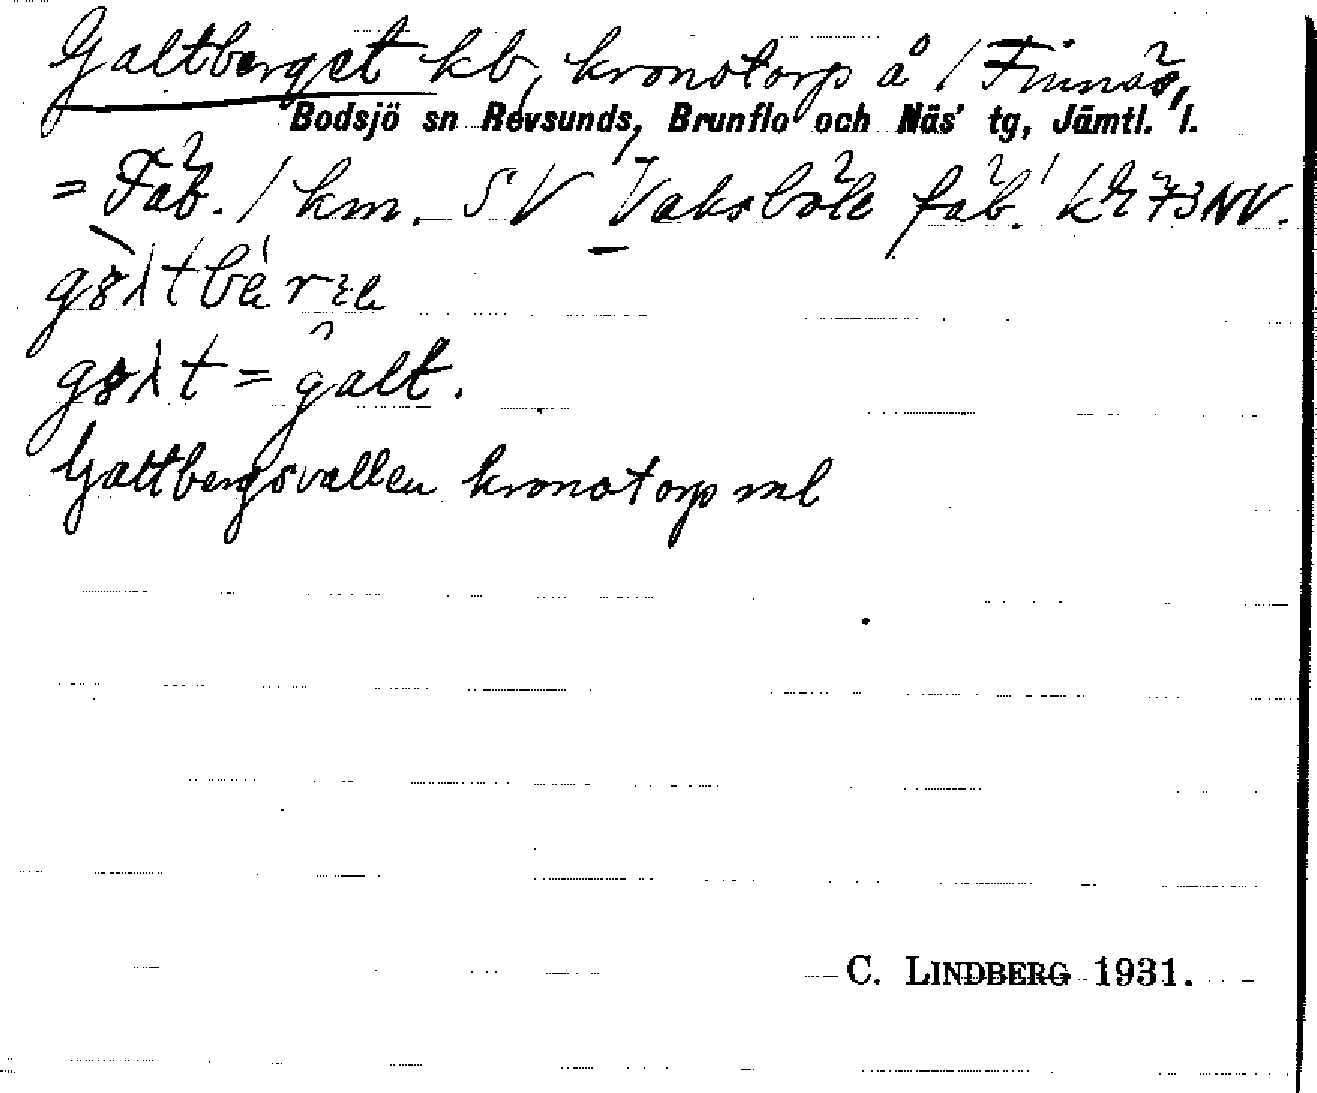 Galtberget kb, kronotorp å 1 Finnäs,
Bodsjö sn Revsunds, Brunflo och Näs' tg, Jämtl. l.
= Fäb. 1 km. SV Valsböle fäb. 73 NV.
galt.
Galtbergsvallen kronotorp ml
C. LINDBERG 1931.